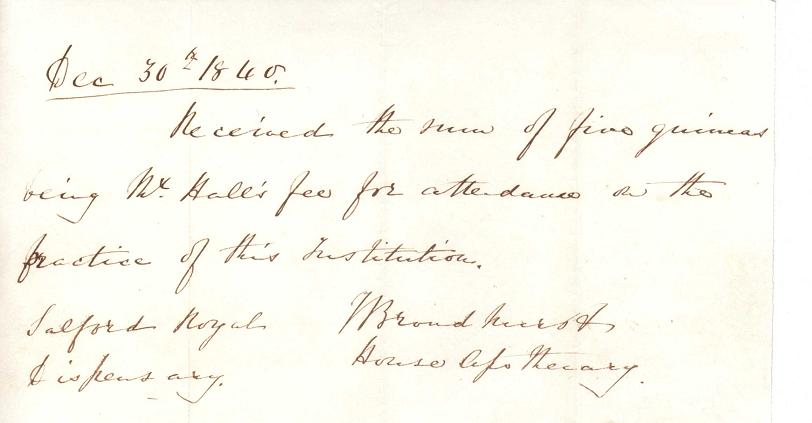 Dec 30th 1840.
Received the sum of five guineas
being Mr. Hall's fee for attendance on the
practice of this Institution.
Salford Royal
Dispensary.
J Broadhurst
House Apothecary.